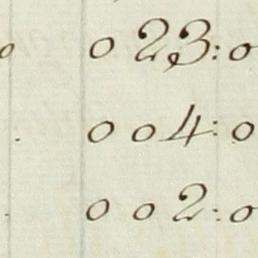 o 0 23:0
. 0 0 4:0
. 0 0 2:0